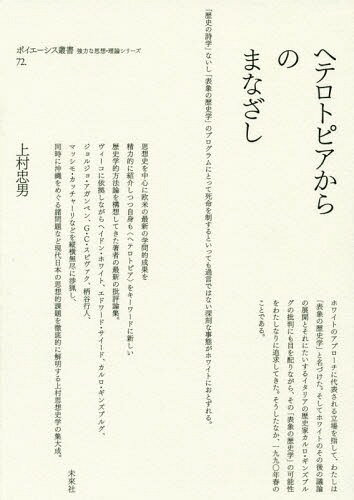 ポイエーシス叢書 強力な思想・理論シリーズ
72.
ヘテロトピアから
の
まなざし
上村忠男
「歴史の詩学」ないし「表象の歴史学」のプログラムにとって死命を制するといっても過言ではない深刻な事態がホワイトにおとずれる。
思想史を中心に欧米の最新の学問的成果を
精力的に紹介しつつ自身も〈ヘテロトピア〉をキーワードに新しい
歴史学的方法論を構想してきた著者の最新の批評論集。
ヴィーコに依拠しながらヘイドン・ホワイト、エドワード・サイード、カルロ・ギンズブルグ、
ジョルジョ・アガンベン、G・C・スピヴァク、柄谷行人、
マッシモ・カッチャーリなどを縦横無尽に渉猟し、
同時に沖縄をめぐる諸問題など現代日本の思想的課題を徹底的に解明する上村思想史学の集大成。
ホワイトのアプローチに代表される立場を指して、わたしは
「表象の歴史学」と名づけた。そしてホワイトのその後の議論
の展開とそれにたいするイタリアの歴史家カルロ・ギンズブル
グの批判にも目を配りながら、その「表象の歴史学」の可能性
をわたしなりに追求してきた。そうしたなか、一九九〇年春の
ことである。
未來社